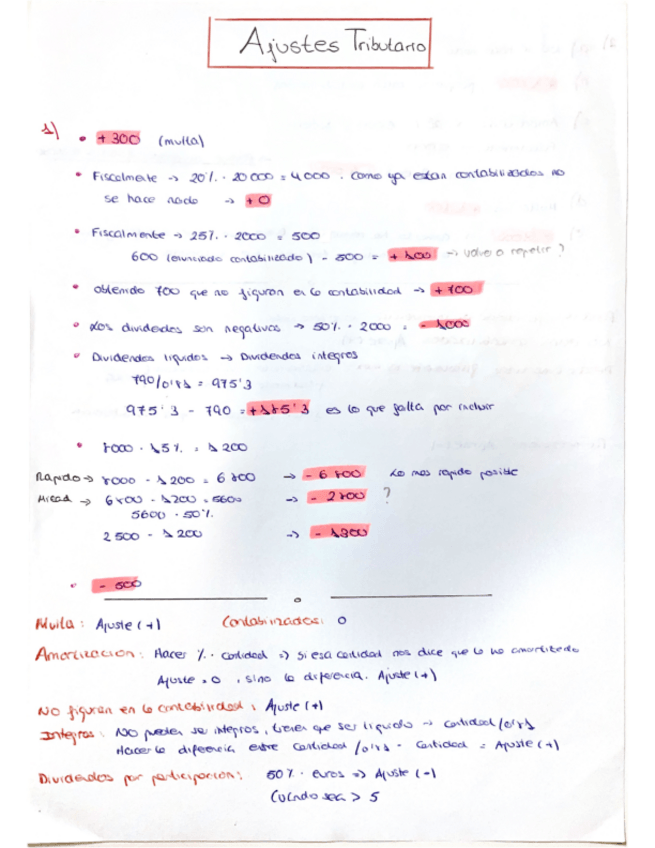 Ajustes Tributario
1) • +300 (multa)
• Fiscalmente → 20% · 20000 = 4000. Como ya estan contabilizados no
se hace nada → +0
• Fiscalmente → 25% · 2000 = 500
600 (enunciado contabilizado) - 500 = +100 → vuelvo a repetir?
• Obtenido 700 que no figuran en la contabilidad → +700
• Los dividendos son negativos → 50% · 2000 = -1000
• Dividendos liquidos → Dividendos integros
790/0'81 = 975'3
975'3 - 790 = +185'3 es lo que falta por incluir
• 8000 · 15% = 1200
Rapido → 8000 - 1200 = 6800 → -6800 Lo mas rapido posible
→ 6800 - 1200 = 5600 → -2800 ?
5600 · 50%
2500 - 1200 → -1300
• -500
Multa: Ajuste (+) Contabilizados: 0
Amortizacion: Hacer % · cantidad => Si esa cantidad nos dice que la ha amortizado
Ajuste = 0, sino la diferencia. Ajuste (+)
No figuran en la contabilidad: Ajuste (+)
Integros: No pueden ser integros, tienen que ser liquido → cantidad/0'81
Hacer la diferencia entre cantidad/0'81 - cantidad = Ajuste (+)
Dividendos por participación: 50% · euros => Ajuste (-)
Cuando sea > 5